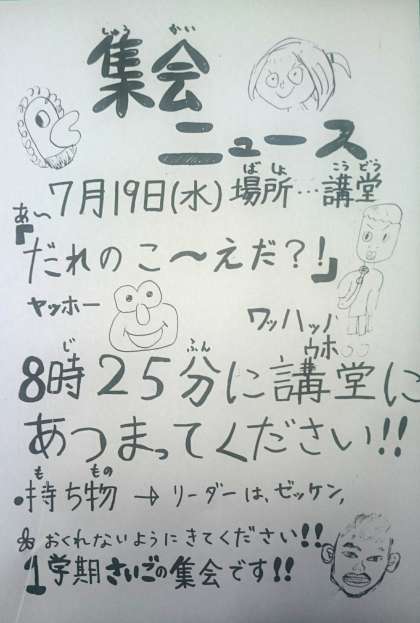 集会
しゅうかい
ニュース
7月19日(水) 場所…講堂
ばしょ こうどう
あ〜
「だれのこ〜えだ?!」
ヤッホー
ワッハッハ
ウホ○○
8時25分に講堂に
じ ふん
あつまってください!!
・持ち物→リーダーは、ゼッケン,
も もの
おくれないようにきてください!!
1学期さいごの集会です!!